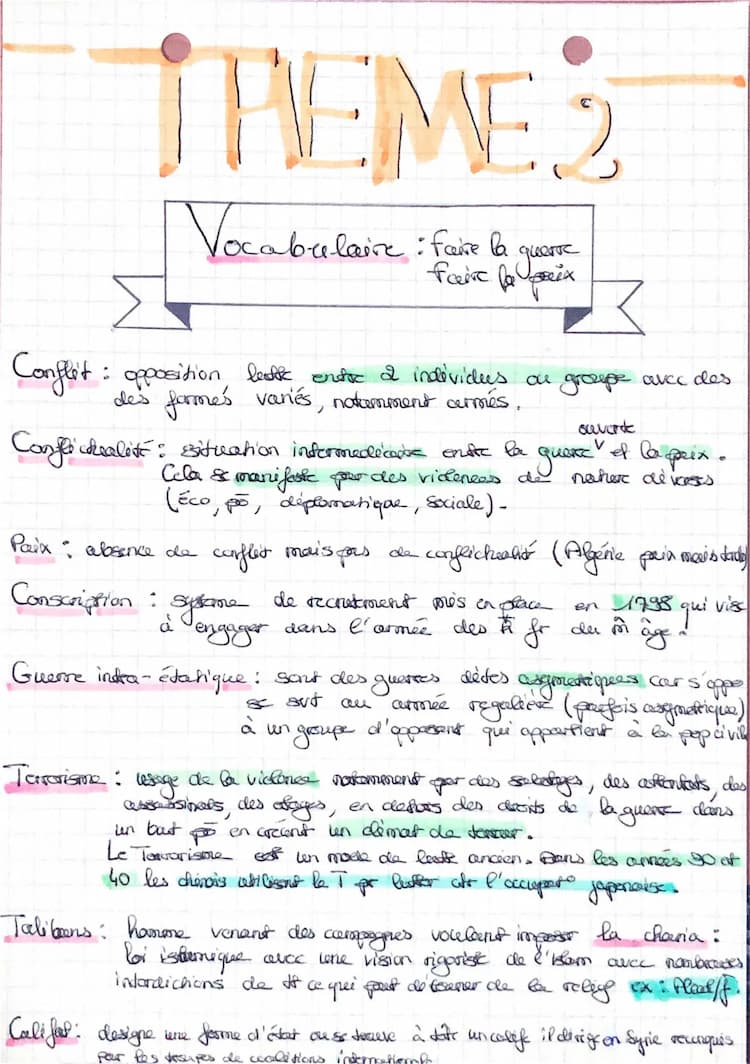 THEME 2
Vocabulaire : faire la guerre
faire la paix
Conflit : opposition entre 2 individus ou groupe avec des
des formes variés, notamment armés.
ouverte
Conflictualité : situation intermédiaire entre la guerre et la paix.
Cela se manifeste par des violences de nature diverses
(Éco, pō, déplomatique, sociale).
Paix : absence de conflit mais pas de conflictualité (Algérie paix mais
Conscription : système de recrutement mis en place en 1798 qui vis
à engager dans l'armée des fr du m̂ âge.
Guerre infra-étatique : sont des guerres dites asymetriques car s'oppo
se svt au armée regalière (parfois asymetrique)
à un groupe d'opposant qui appartient à la pop civile
Terrorisme : usage de la violence notamment par des sabotages, des attentats, des
assassinats, des otages, en dehors des droits de la guerre dans
un but pō en créant un climat de terreur.
Le Terrorisme est un mode de lutte ancien. Dans les années 30 et
40 les chinois utilisent le T pr lutter ctr l'occupat° japonaise.
Talibans : homme venant des campagnes voulant imposer la charia :
loi islamique avec une vision rigoriste de l'islam avec nombreuses
interdictions de tt ce qui peut détourner de la relig ex :
Califat : designe une forme d'état ou se trouve à tête un calife il dirige en Syrie
par les troupes de coalitions